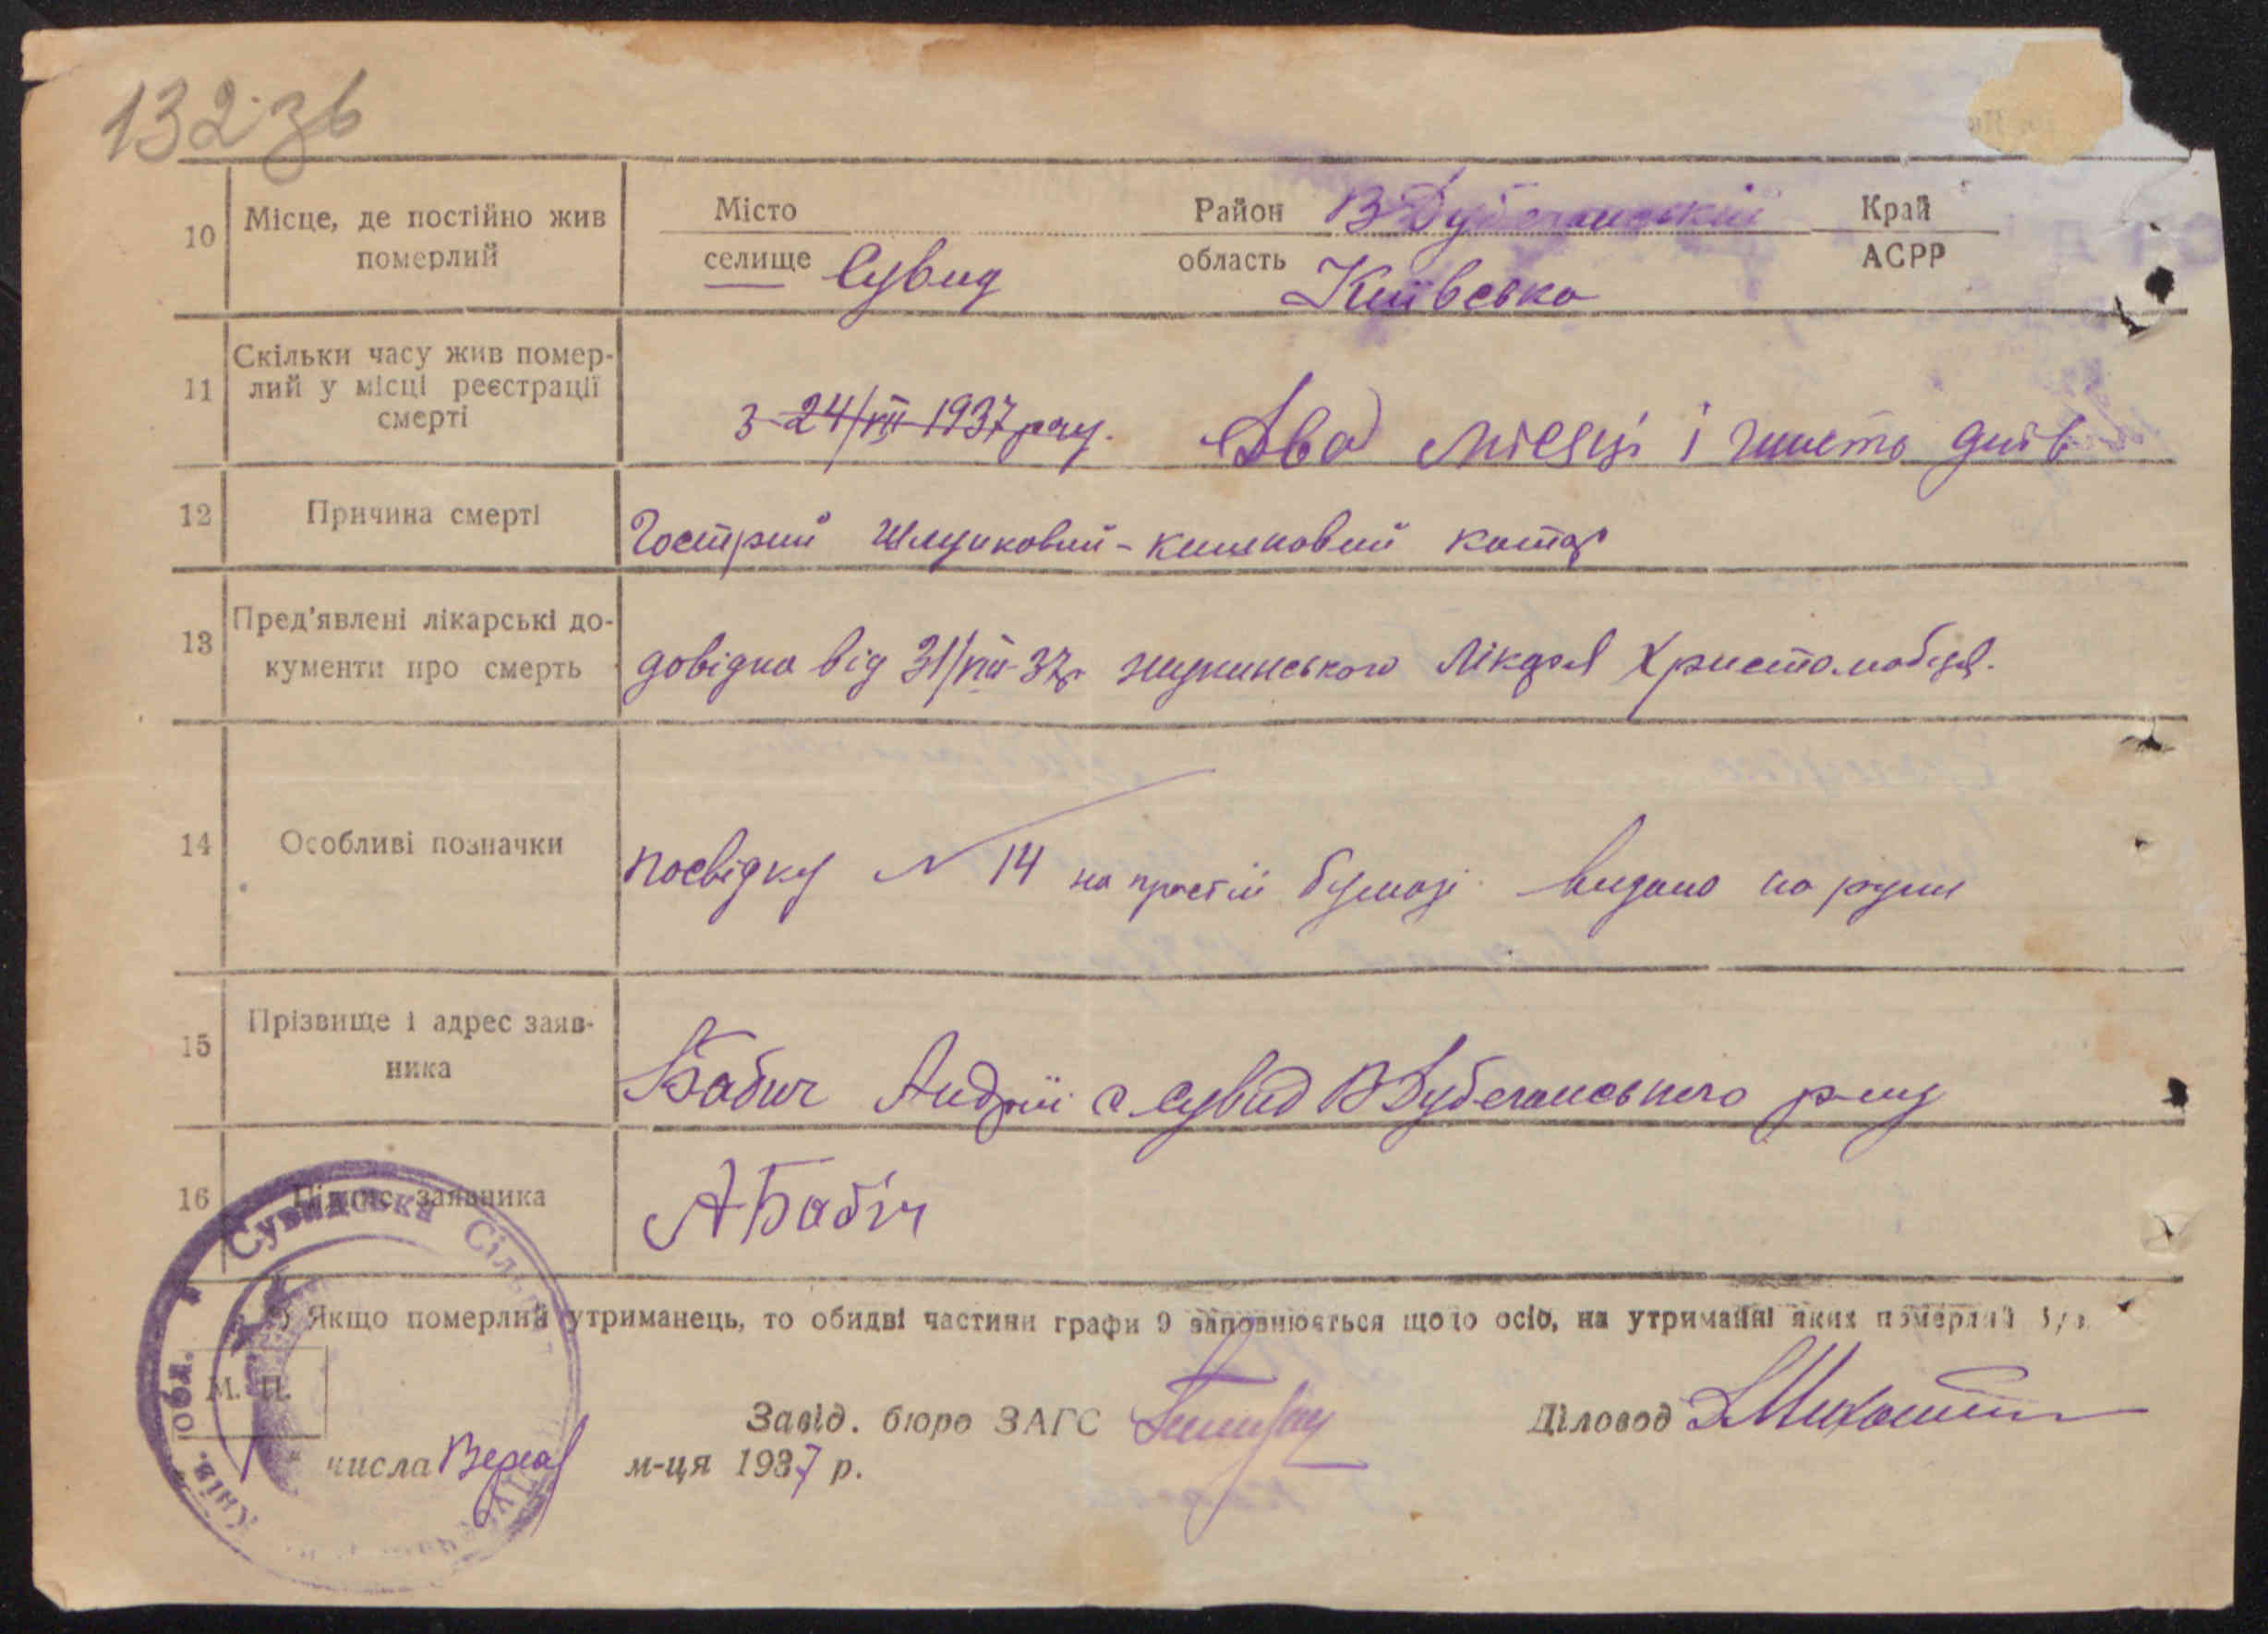 132 зв
10 Місце, де постійно жив померлий
Місто Район В Дубечанський Край
селище Сувид область Київська АСРР
11 Скільки часу жив помер-
лий у місці реєстрації
смерті
з 24/VII 1937 року. Два місяці і шість днів
12 Причина смерті Гострий шлунковий-кишковий катар
13 Пред'явлені лікарські до-
кументи про смерть
довідка від 31/VIII-37р лікаря
14 Особливі позначки посвідку № 14 на простій бумазі видано на руки
15 Прізвище і адрес заяв-
ника
Бабич Андрій с Сувид В Дубечанського р-ну
16 Підпис заявника А Бабіч
Сувидська Сіль
Київ. обл.
*) Якщо померлий утриманець, то обидві частини графи 9 заповнюється щодо осіб, на утриманні яких померлий був
М. П.
Завід. бюро ЗАГС Діловод
1 числа Верес м-ця 1937 р.